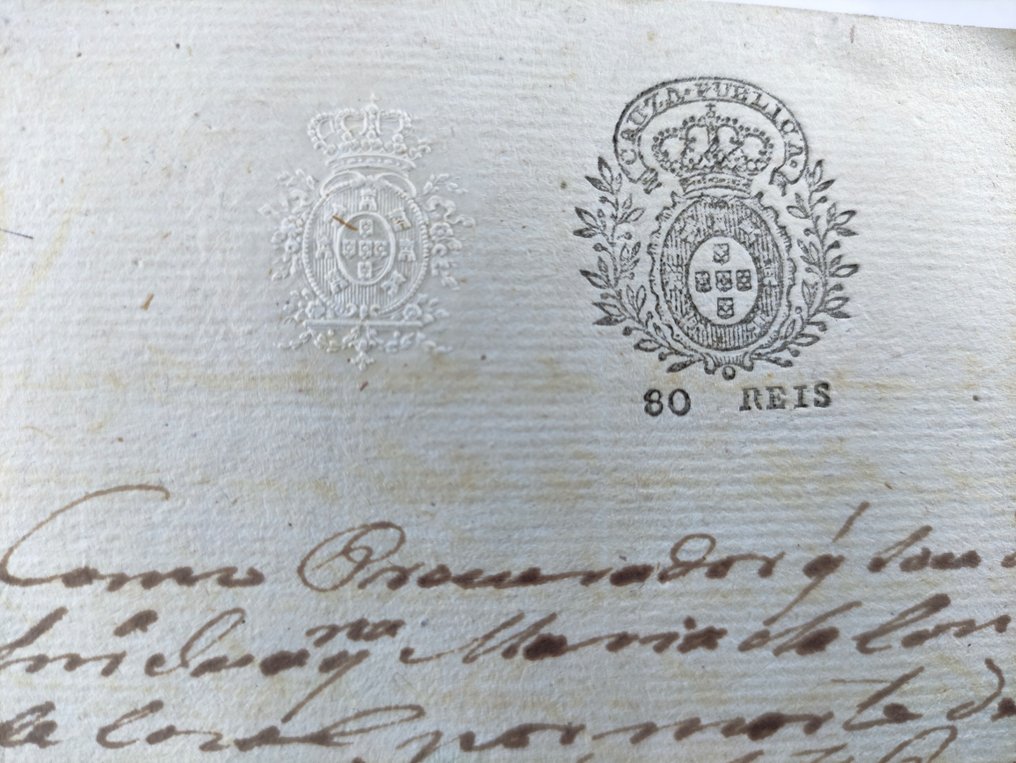 CAUZA PUBLICA
80 REIS
Como Procurador q̃ sou
Maria da Con
de por morte de